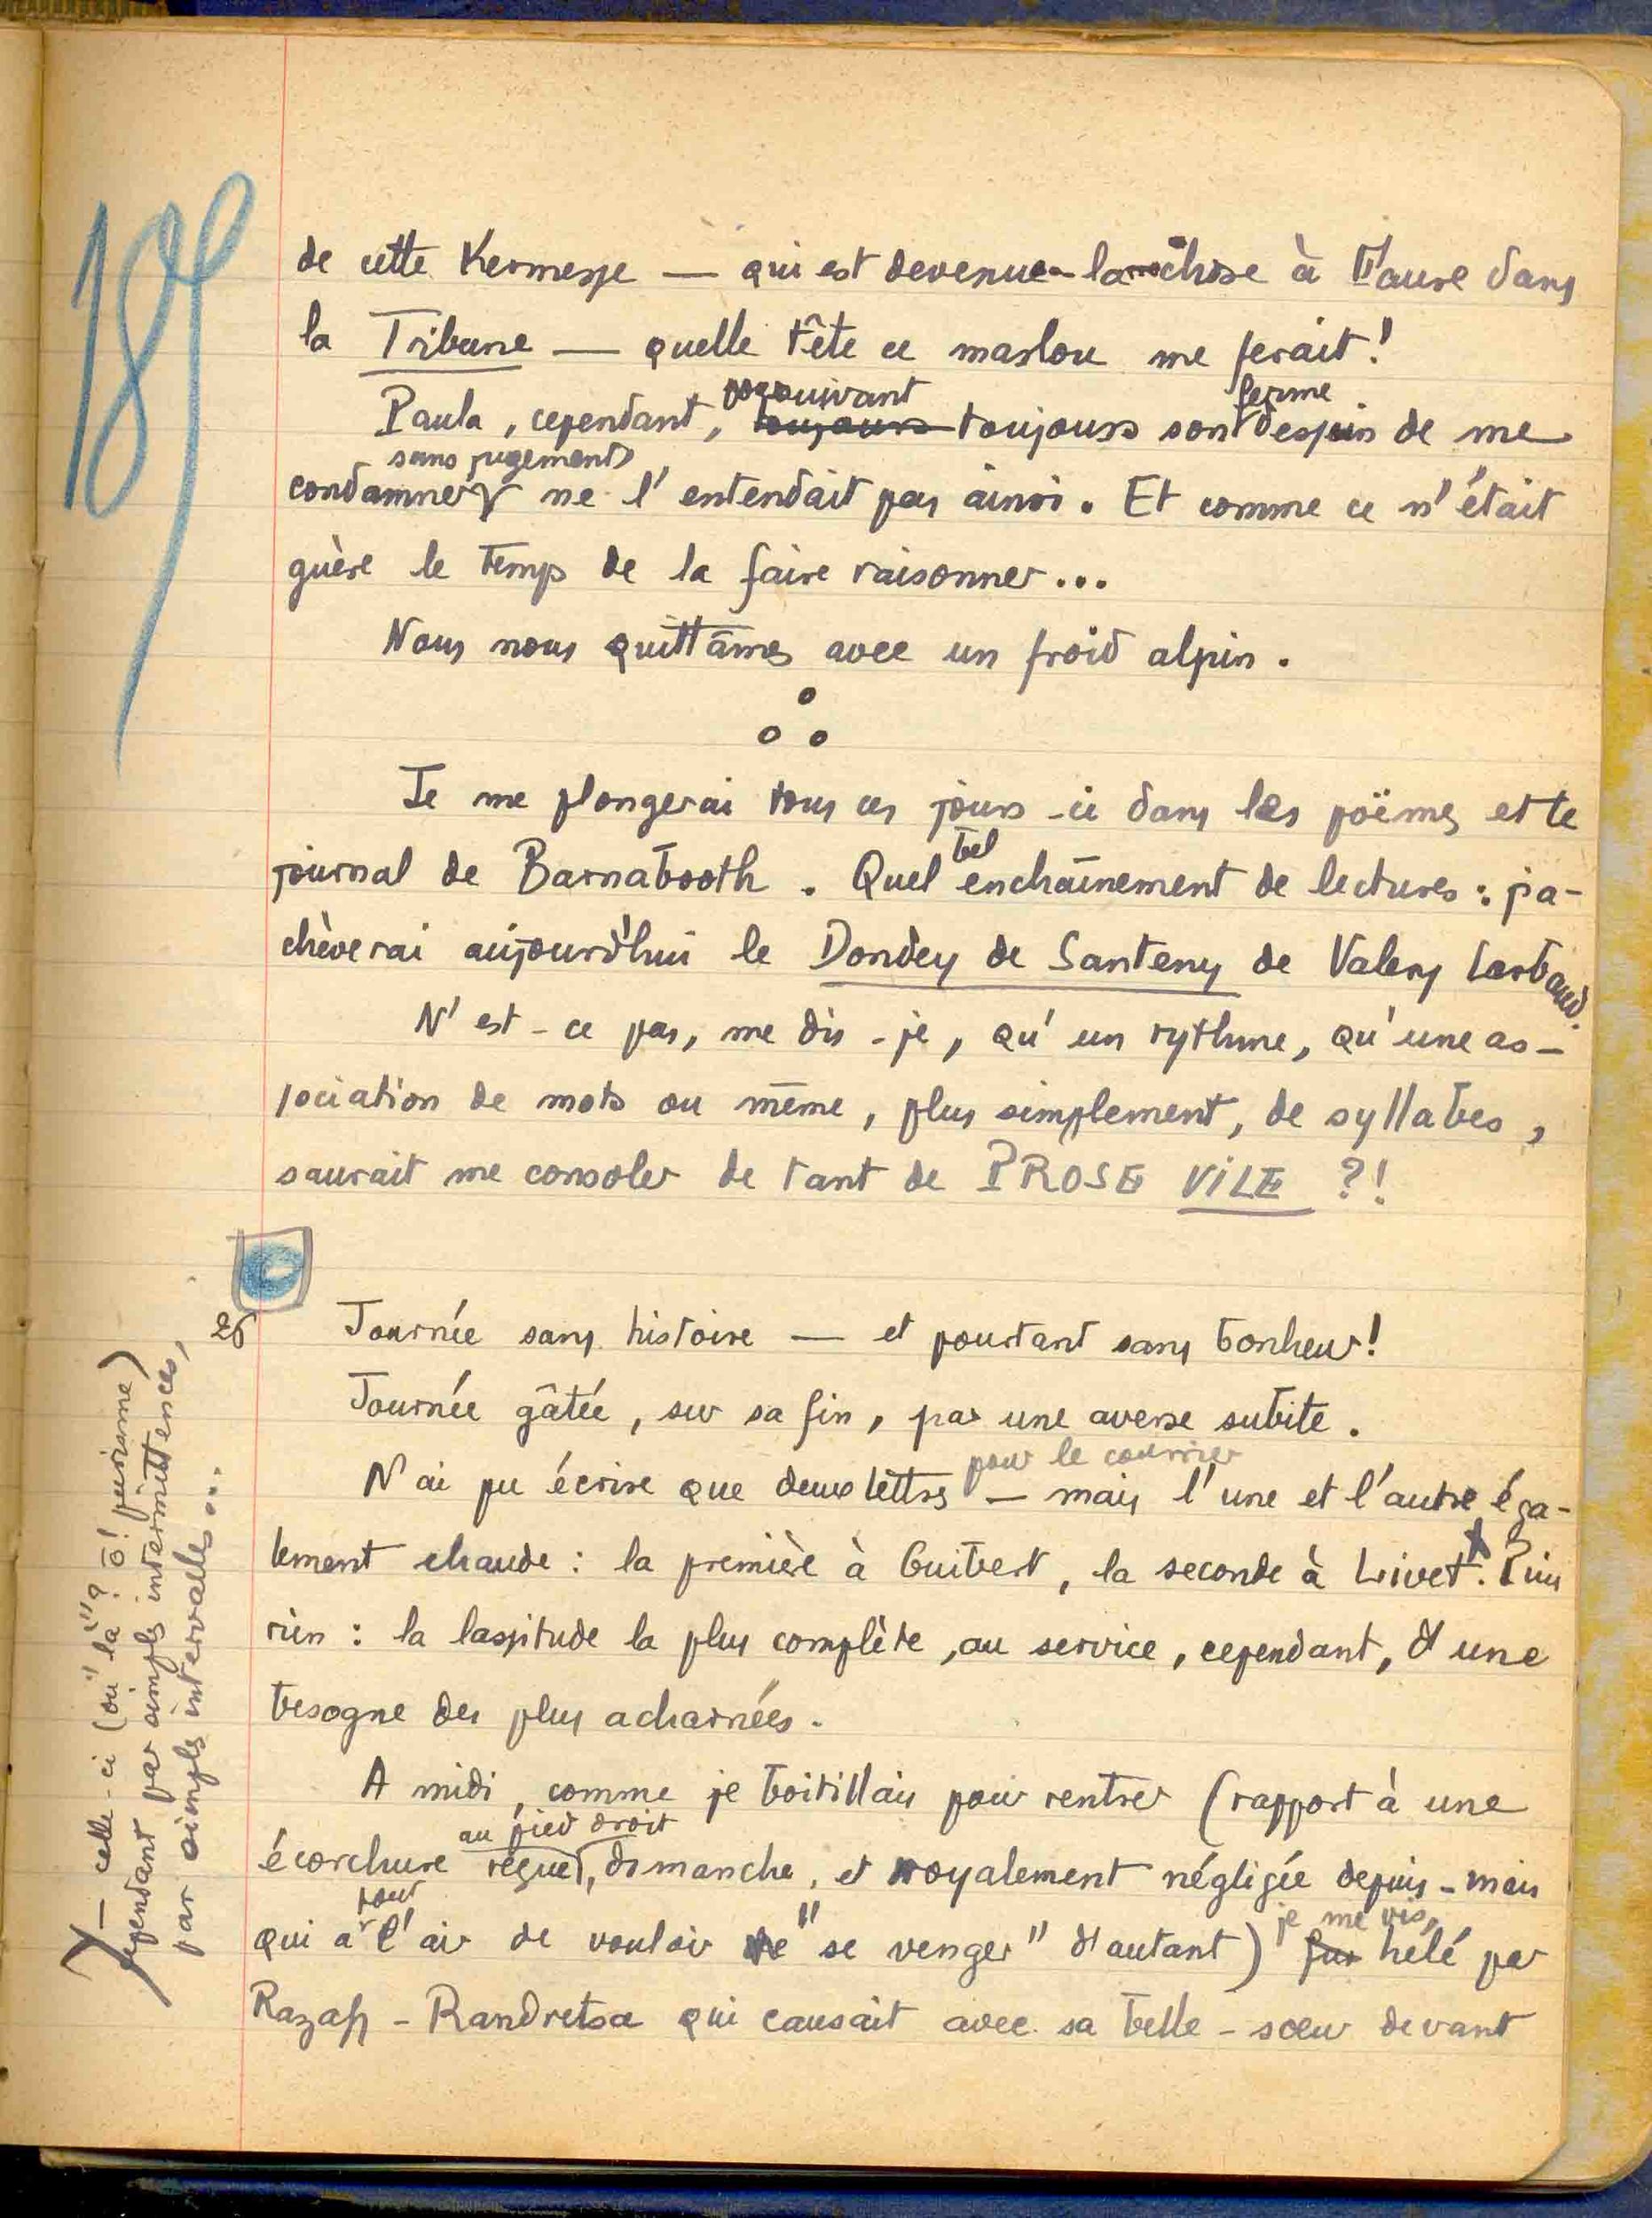 189
de cette Kermesse — qui est devenue la chose à Faure dans
la Tribune — quelle tête ce marlou me ferait !
Paula, cependant, poursuivant toujours son ferme dessein de me
condamner sans jugement ne l'entendait pas ainsi. Et comme ce n'était
guère le temps de la faire raisonner...
Nous nous quittâmes avec un froid alpin.
Je me plongerai tous ces jours-ci dans les poëmes et le
journal de Barnabooth. Quel bel enchaînement de lectures : j'a-
chèverai aujourd'hui le Dondey de Santeny de Valery Larbaud.
N'est-ce pas, me dis-je, qu'un rythme, qu'une as-
sociation de mots ou même, plus simplement, de syllabes,
saurait me consoler de tant de PROSE VILE ?!
26
Journée sans histoire — et pourtant sans bonheur !
Journée gâtée, sur sa fin, par une averse subite.
N'ai pu écrire que deux lettres pour le courrier — mais l'une et l'autre éga-
lement chaude : la première à Guibert, la seconde à Livet. Puis
rien : la lassitude la plus complète, au service, cependant, d'une
besogne des plus acharnées.
A midi, comme je boitillais pour rentrer (rapport à une
écorchure reçue au pied droit, dimanche, et royalement négligée depuis - mais
qui a pour l'air de vouloir "se venger" d'autant) je me vis hélé par
Razafi-Randretsa qui causait avec sa belle-sœur devant
— celle-ci (ou "là" ? ô ! purisme)
cependant par simples intermittences,
par simples intervalles...